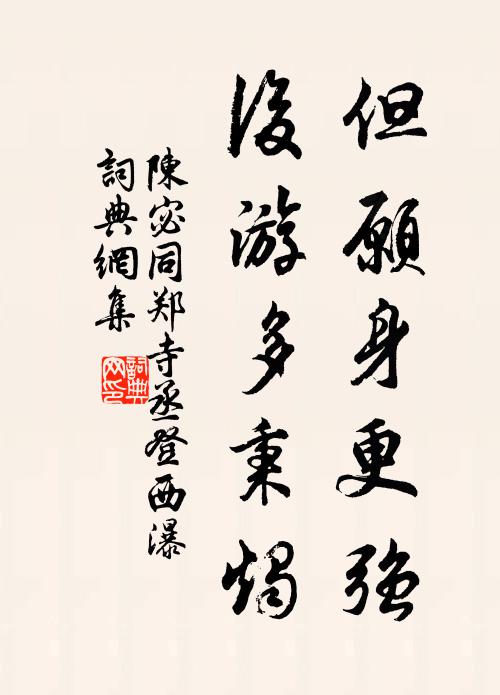 但願身更強
後游多秉燭
陳宓同郑寺丞登西瀑
詞典網集
詞典网印